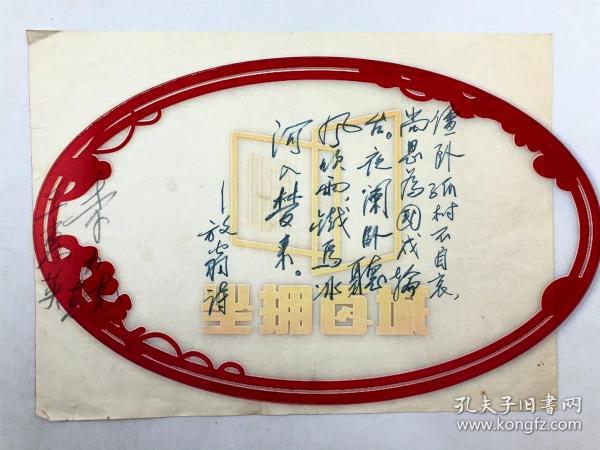 僵卧孤村不自哀，
尚思为国戍輪
台。夜阑卧聽
风吹雨，鐵馬冰
河入梦来。
—放翁诗
坐拥百城
孔夫子旧书网
www.kongfz.com